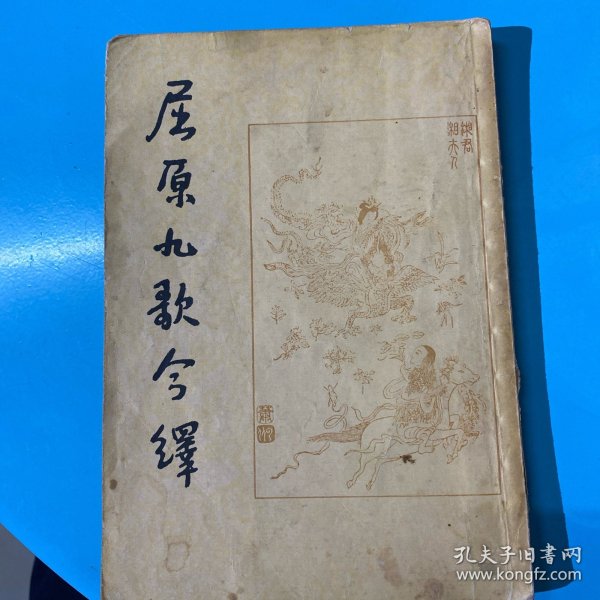 屈原九歌今繹
湘君
湘夫人
孔夫子旧书网
www.kongfz.com